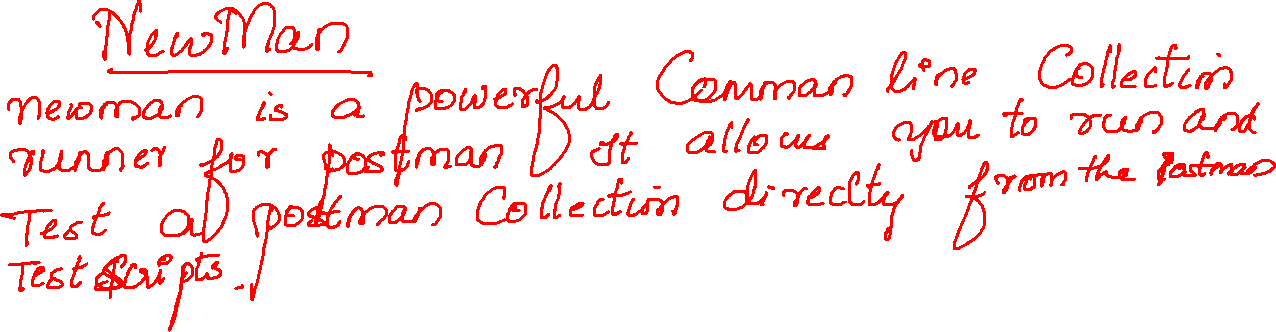 NewMan
newman is a powerful Comman line Collection
runner for postman It allows you to run and
Test a postman Collection directly from the Postman
Test Scripts.